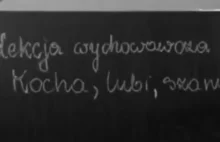 Lekcja wychowawcza
Kocha, lubi, szan